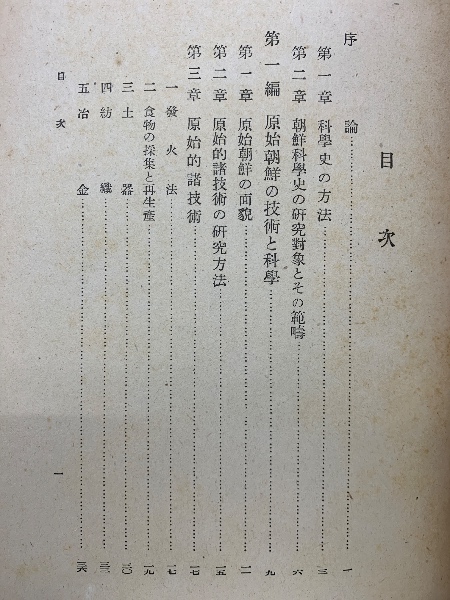 目次
序論……一
第一章 科學史の方法……三
第二章 朝鮮科學史の研究對象とその範疇……六
第一編 原始朝鮮の技術と科學……九
第一章 原始朝鮮の面貌……一一
第二章 原始的諸技術の研究方法……一五
第三章 原始的諸技術……一七
一 發火法……一七
二 食物の採集と再生產……一九
三 土器……三〇
四 紡織……三三
五 冶金……三六
目次 一